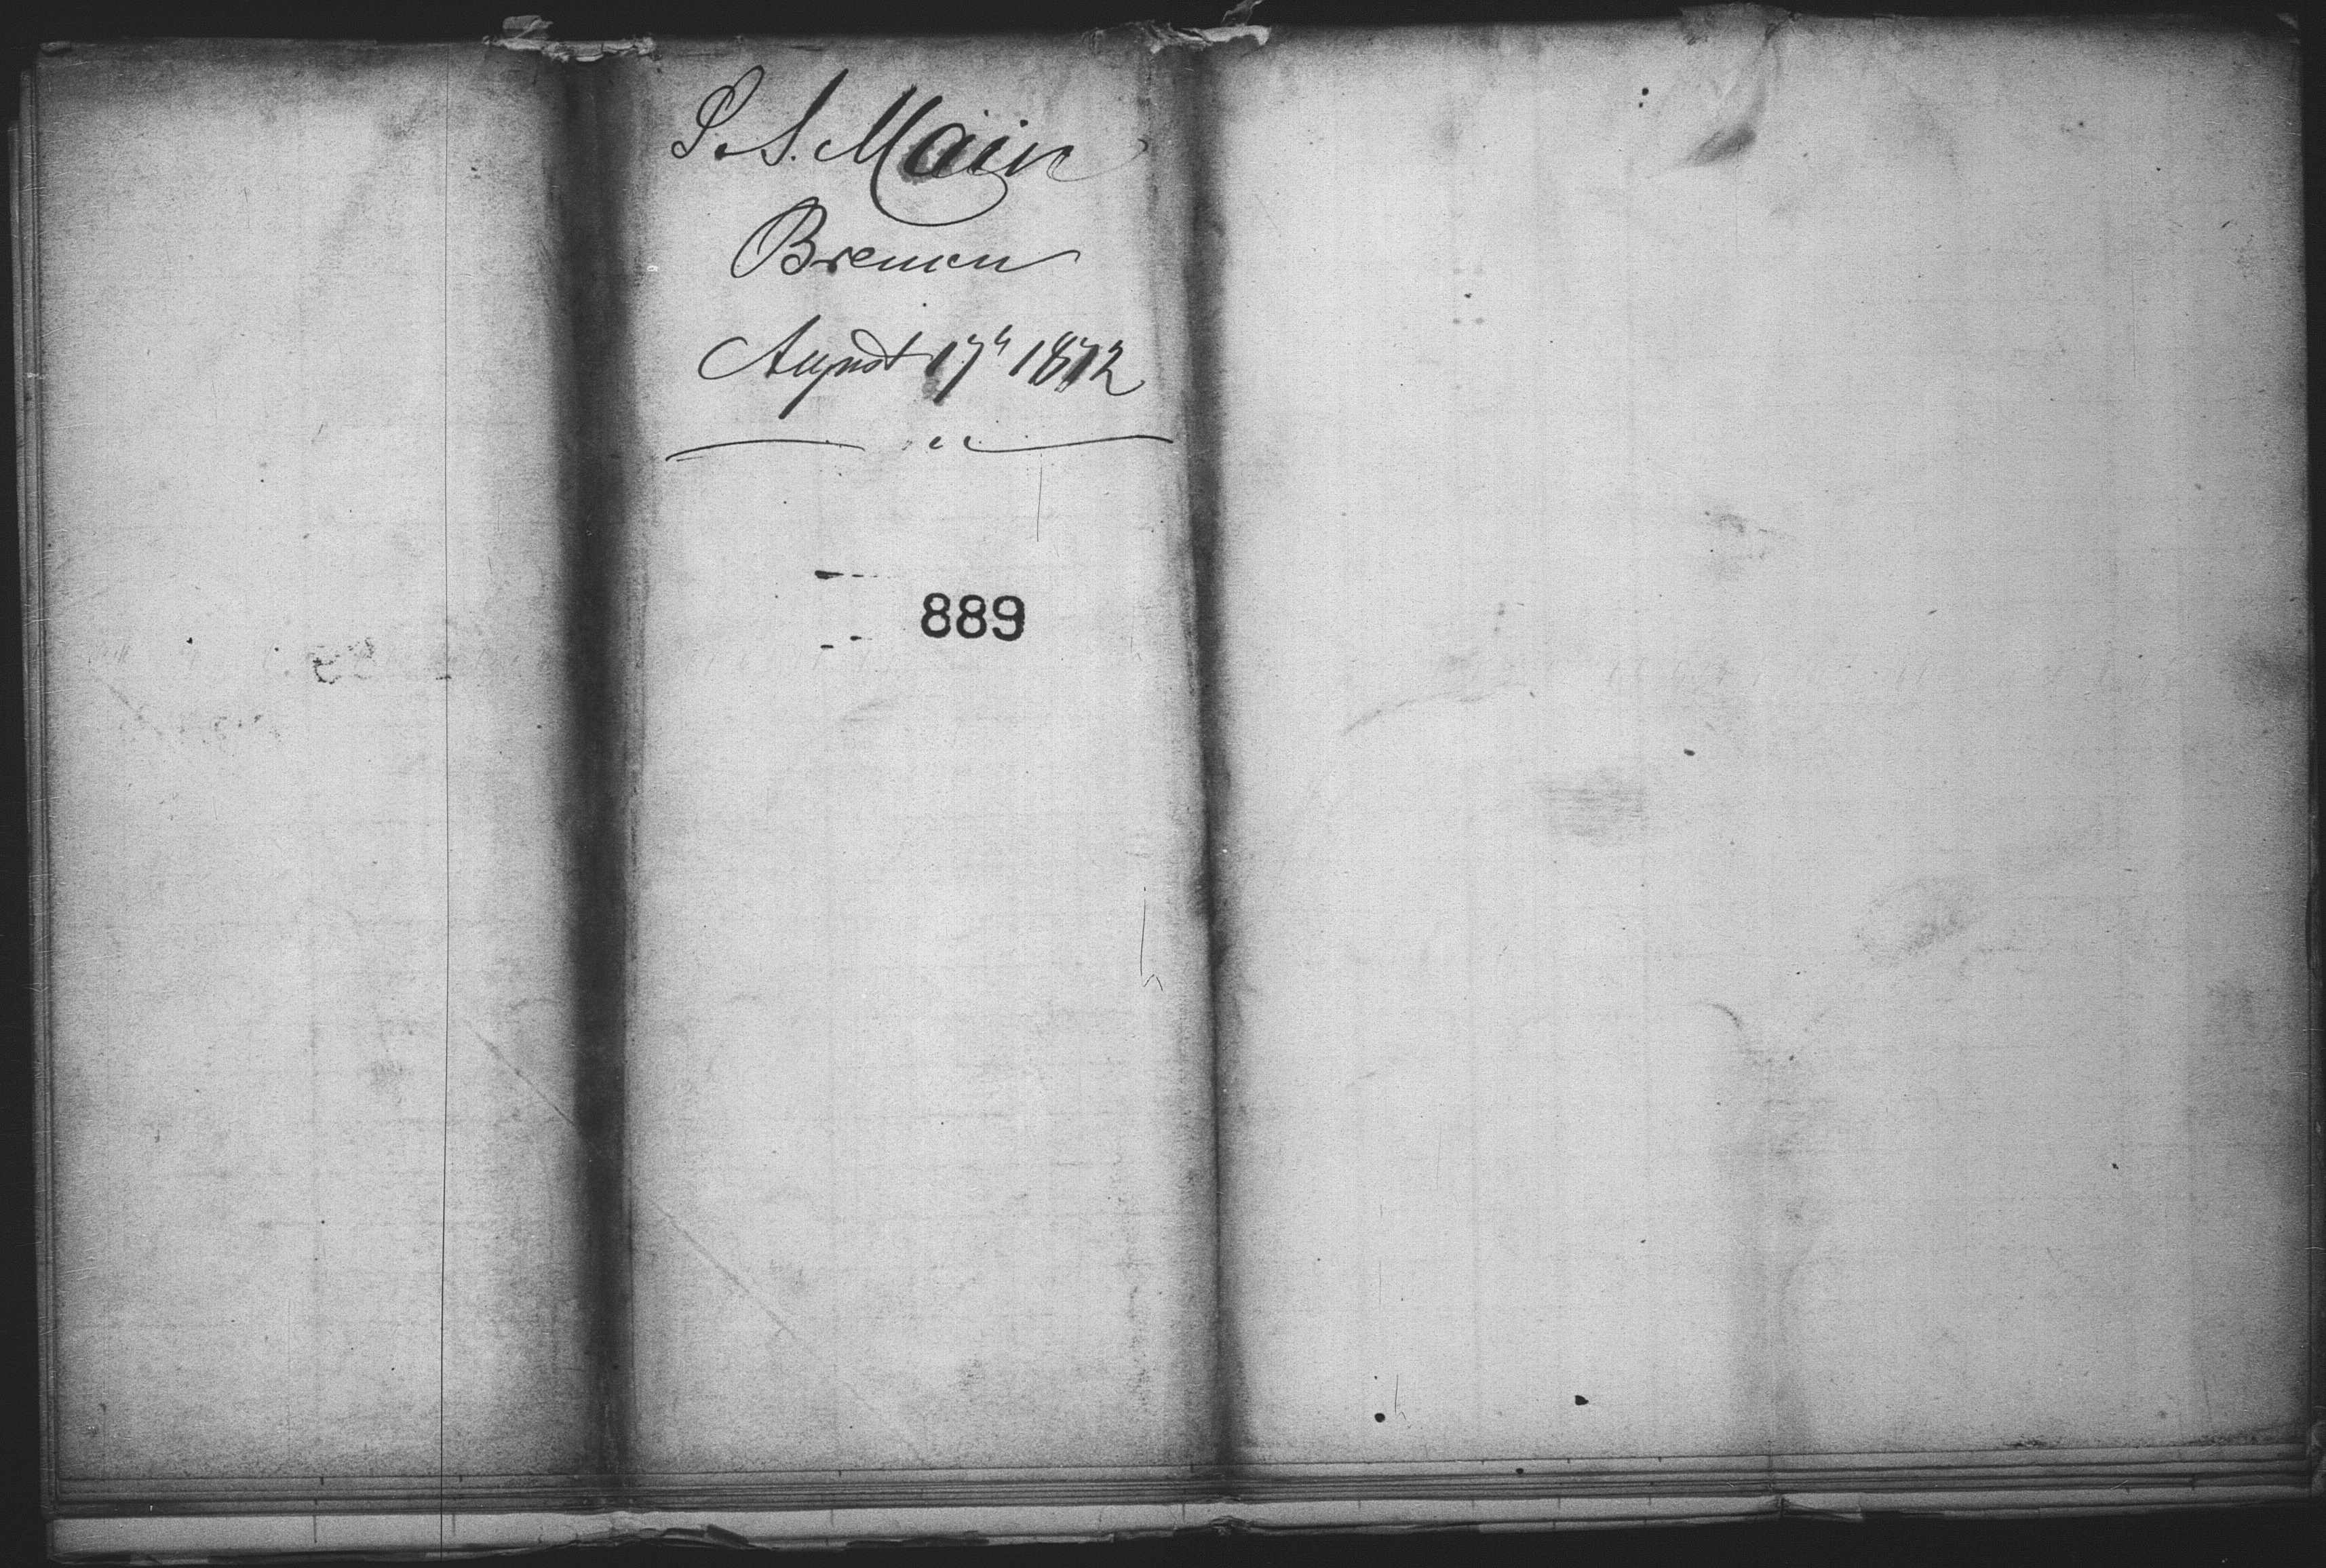 S.S. Main
Bremen
August 17th 1872
889